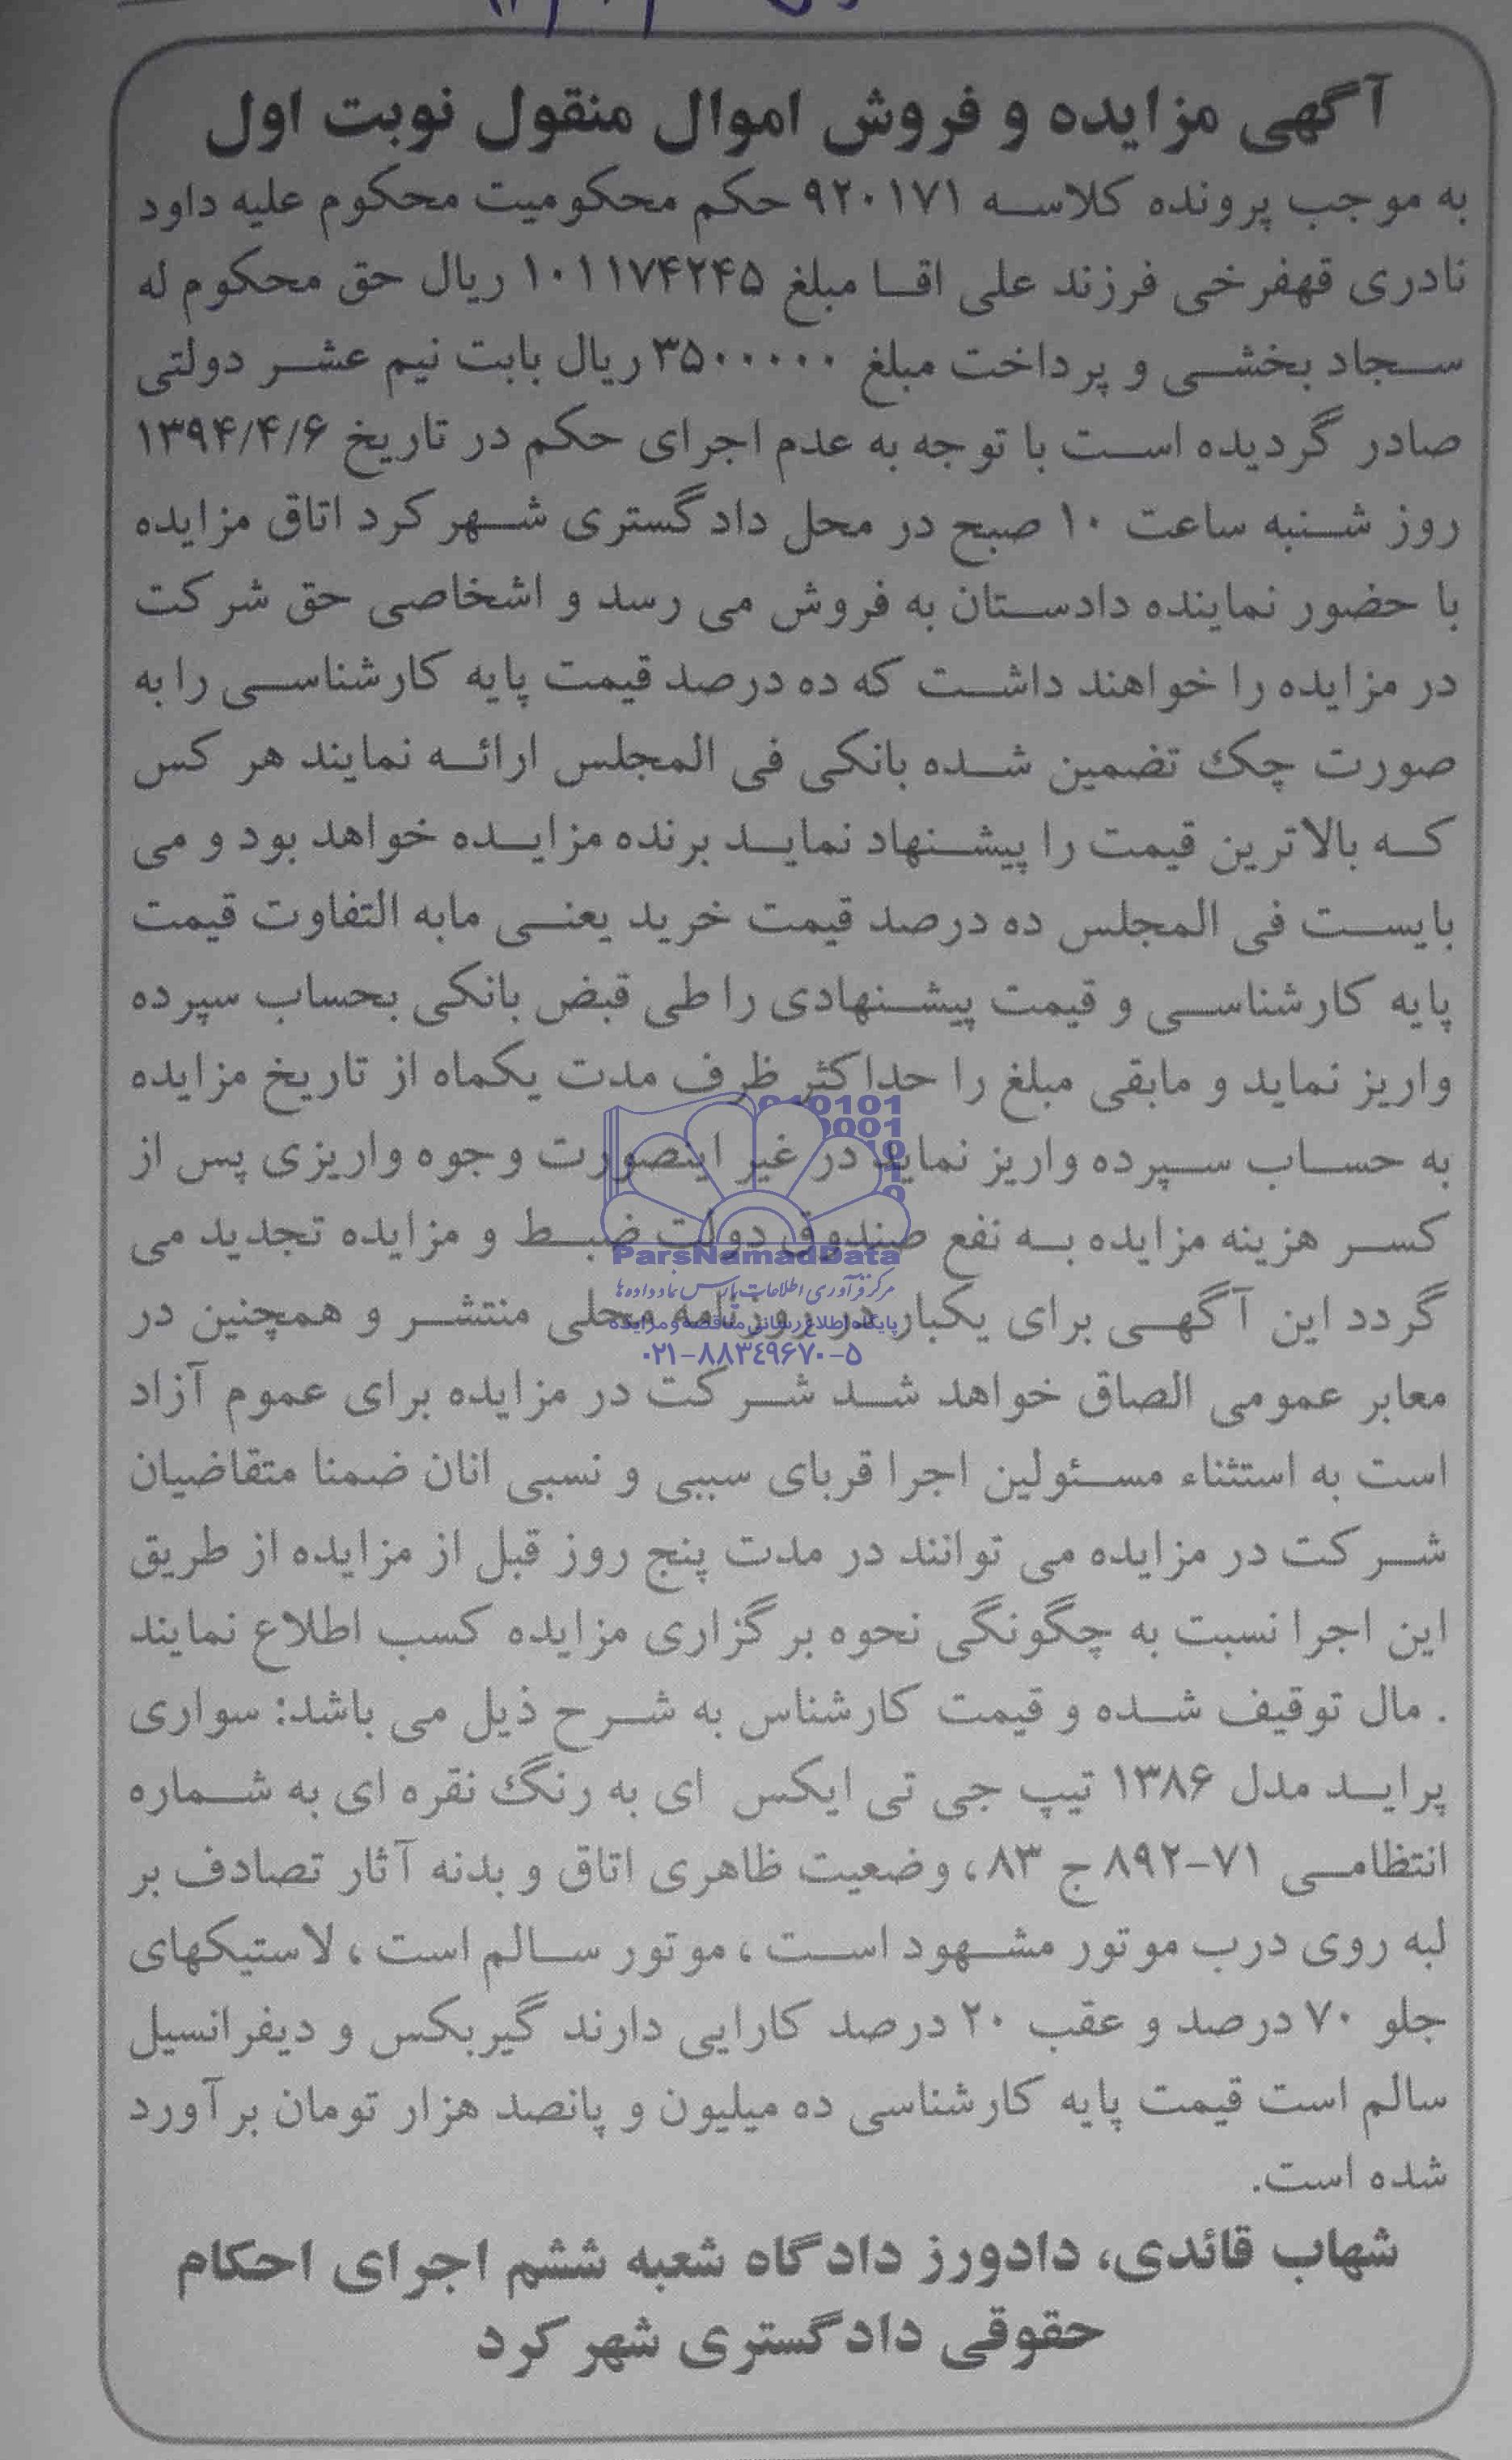 آگهی مزایده و فروش اموال منقول نوبت اول
به موجب پرونده کلاسه ۹۲۰۱۷۱ حکم محکومیت محکوم علیه داود
نادری قهفرخی فرزند علی اقا مبلغ ۱۰۱۱۷۴۲۴۵ ریال حق محکوم له
سجاد بخشی و پرداخت مبلغ ۳۵۰۰۰۰۰ ریال بابت نیم عشر دولتی
صادر گردیده است با توجه به عدم اجرای حکم در تاریخ ۱۳۹۴/۴/۶
روز شنبه ساعت ۱۰ صبح در محل دادگستری شهرکرد اتاق مزایده
با حضور نماینده دادستان به فروش می رسد و اشخاصی حق شرکت
در مزایده را خواهند داشت که ده درصد قیمت پایه کارشناسی را به
صورت چک تضمین شده بانکی فی المجلس ارائه نمایند هر کس
که بالاترین قیمت را پیشنهاد نماید برنده مزایده خواهد بود و می
بایست فی المجلس ده درصد قیمت خرید یعنی مابه التفاوت قیمت
پایه کارشناسی و قیمت پیشنهادی را طی قبض بانکی بحساب سپرده
واریز نماید و مابقی مبلغ را حداکثر ظرف مدت یکماه از تاریخ مزایده
010101
0001
به حساب سپرده واریز نماید در غیر اینصورت وجوه واریزی پس از
کسر هزینه مزایده به نفع صندوق دولت ضبط و مزایده تجدید می
ParsNamadData
مرکز فرآوری اطلاعات پارس نماد داده ها
گردد این آگهی برای یکبار در روزنامه محلی منتشر و همچنین در
پایگاه اطلاع رسانی مناقصه و مزایده
۰۲۱-۸۸۳۴۹۶۷۰-۵
معابر عمومی الصاق خواهد شد شرکت در مزایده برای عموم آزاد
است به استثناء مسئولین اجرا قربای سببی و نسبی انان ضمنا متقاضیان
شرکت در مزایده می توانند در مدت پنج روز قبل از مزایده از طریق
این اجرا نسبت به چگونگی نحوه برگزاری مزایده کسب اطلاع نمایند
. مال توقیف شده و قیمت کارشناس به شرح ذیل می باشد: سواری
پراید مدل ۱۳۸۶ تیپ جی تی ایکس ای به رنگ نقره ای به شماره
انتظامی ۷۱-۸۹۲ ج ۸۳، وضعیت ظاهری اتاق و بدنه آثار تصادف بر
لبه روی درب موتور مشهود است، موتور سالم است، لاستیکهای
جلو ۷۰ درصد و عقب ۲۰ درصد کارایی دارند گیربکس و دیفرانسیل
سالم است قیمت پایه کارشناسی ده میلیون و پانصد هزار تومان برآورد
شده است.
شهاب قائدی، دادورز دادگاه شعبه ششم اجرای احکام
حقوقی دادگستری شهرکرد